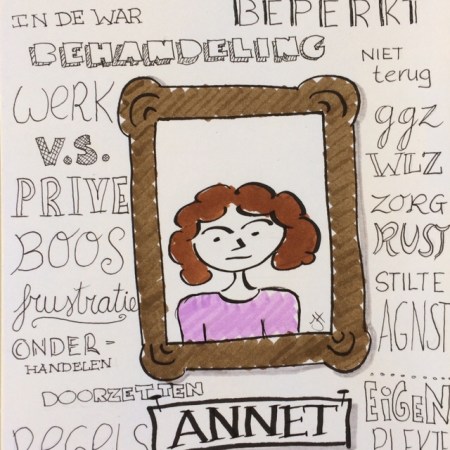 IN DE WAR
BEPERKT
BEHANDELING
NIET
terug
WERK
V.S.
PRIVE
BOOS
frustratie
ONDER-
HANDELEN
DOORZETTEN
REGELS
ggz
WLZ
ZORG
RUST
STILTE
AGNST
EiGEN
PLEKJE
ANNET